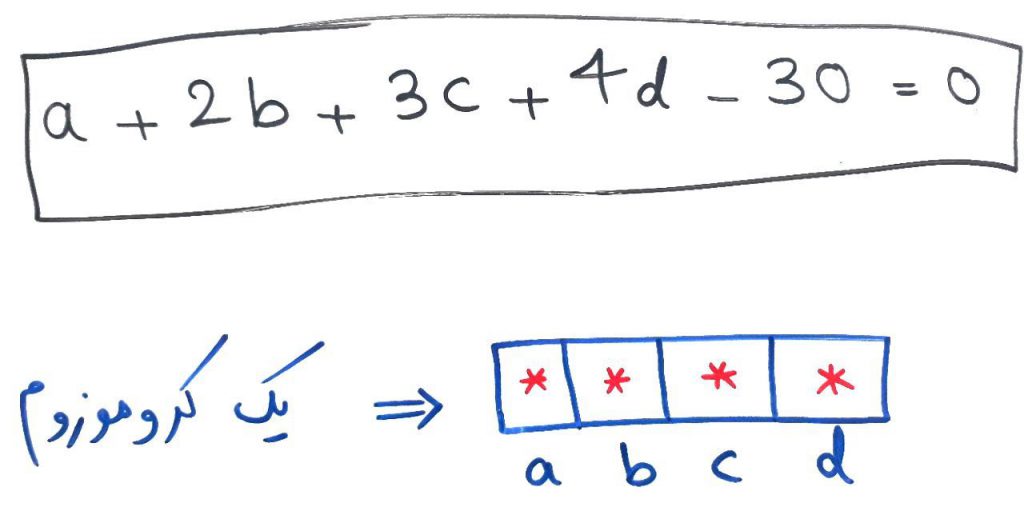 a + 2b + 3c + 4d - 30 = 0
یک کروموزوم ⇒ * * * *
a b c d